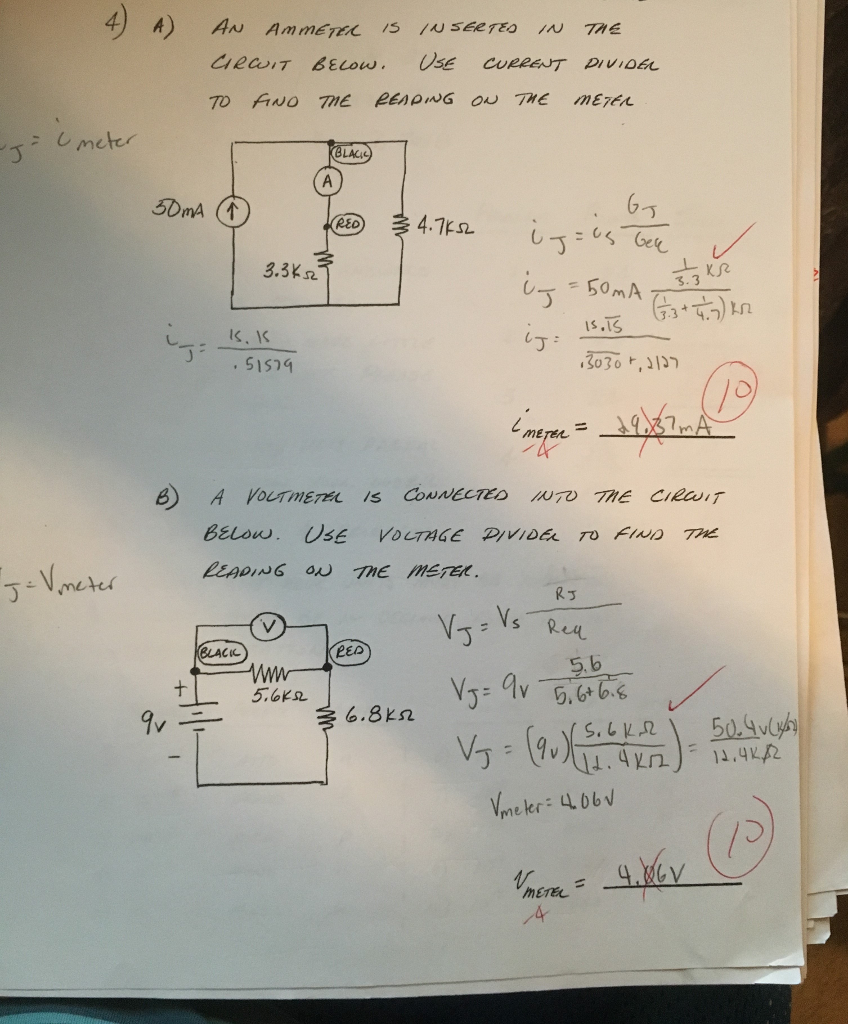 4) A) AN AMMETER IS INSERTED IN THE
CIRCUIT BELOW. USE CURRENT DIVIDER
TO FIND THE READING ON THE METER
J = i meter
BLACK
A
50mA
RED
4.7KΩ
3.3KΩ
i J = is GJ / Geq
i J = 50mA 1/3.3 KΩ / (1/3.3 + 1/4.7) KΩ
iJ = 15.15 / .3030 + .2127
i J = 15.15 / .51579
10
i METER = 29.37mA
B) A VOLTMETER IS CONNECTED INTO THE CIRCUIT
BELOW. USE VOLTAGE DIVIDER TO FIND THE
READING ON THE METER.
J = Vmeter
V
BLACK
RED
5.6KΩ
+
9v
6.8KΩ
-
VJ = Vs RJ / Req
VJ = 9v 5.6 / 5.6+6.8
VJ = (9v)(5.6KΩ / 12.4KΩ) = 50.4v(KΩ) / 12.4KΩ
Vmeter = 4.06V
10
V METER = 4.06V